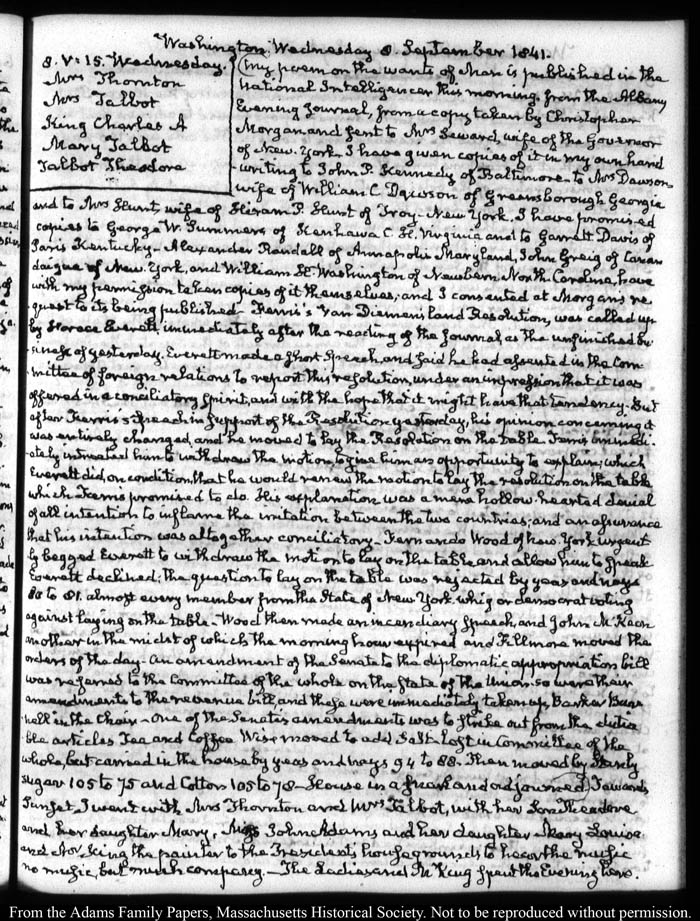 Washington, Wednesday 8. September 1841.
8. V: 15. Wednesday.
Mrs Thornton
Mrs Talbot
King Charles A
Mary Talbot
Talbot Theodore
My poem on the wants of Man is published in the
National Intelligencer this morning from the Albany
Evening Journal, from a copy taken by Christopher
Morgan and sent to Mrs Seward, wife of the Governor
of New-York. I have given copies of it in my own hand
writing to John P. Kennedy of Baltimore- to Mrs Dawson
wife of William C. Dawson of Greensborough Georgia
and to Mrs Hunt wife of Hiram P. Hunt of Troy- New York. I have promised
copies to George W. Summers of Kenhawa C. H. Virginia and to Garrett Davis of
Paris Kentucky- Alexander Randall of Annapolis Maryland, John Greig of Canan
daigue of New-York, and William H. Washington of Newbern North Carolina, have
with my permission taken copies of it themselves; and I consented at Morgans re
quest to its being published- Ferris's Van Diemen's land Resolution, was called up
by Horace Everett, immediately after the reading of the Journal, as the unfinished bu
siness of yesterday. Everett made a short Speech, and said he had assented in the Com
mittee of foreign relations to report this resolution, under an impression that it was
offered in a conciliatory spirit, and with the hope that it might have that tendency- But
after Ferris's Speech in support of the Resolution yesterday, his opinion concerning it
was entirely changed, and he moved to lay the Resolution on the table Ferris immedi-
ately intreated him to withdraw the motion, to give him an opportunity to explain; which
Everett did, on condition that he would renew the motion to lay the resolution on the table
which Ferris promised to do. His explanation was a mere hollow hearted denial
of all intention to inflame the irritation between the two countries; and an assurance
that his intention was altogether conciliatory- Fernando Wood of New York urgent
ly begged Everett to withdraw the motion to lay on the table and allow him to speak
Everett declined; the question to lay on the table was rejected by yeas and nays
80 to 81. almost every member from the State of New York whig or democrat voting
against laying on the table- Wood then made an incendiary speech, and John M.
another in the midst of which the morning hour expired and Fillmore moved the
orders of the day- An amendment of the Senate to the diplomatic appropriation bill
was referred to the Committee of the whole on the State of the Union. so were their
amendments to the revenue bill, and these were immediately taken up,
in the Chair- One of the Senate's amendments was to strike out from the dutia
ble articles Tea and Coffee Wise moved to add Salt- Lost in Committee of the
whole, but carried in the house by yeas and nays 94 to 88. Then moved by
Sugar 105 to 75 and Cotton 105 to 78- House in a freak and adjourned. Towards
Sunset, I went with Mrs Thornton and Mrs Talbot, with her Son Theodore
and her daughter Mary, Mrs John Adams and her daughter Mary Louisa
and Mr King the painter to the President's house grounds to hear the music
no music, but much company.- The Ladies and Mr King spent the Evening here.
From the Adams Family Papers, Massachusetts Historical Society. Not to be reproduced without permission.